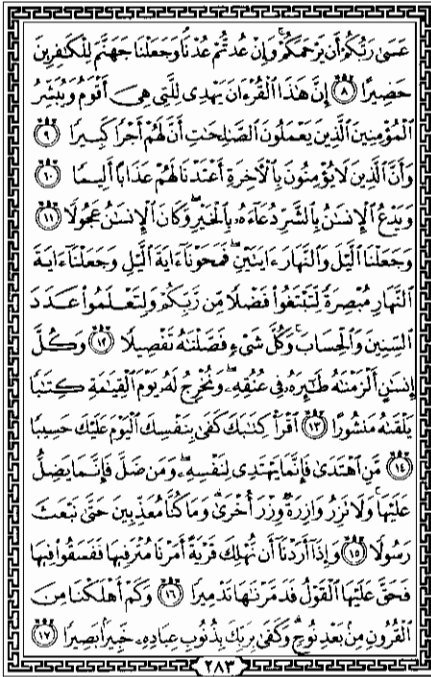 عَسَىٰ رَبُّكُمْ أَن يَرْحَمَكُمْ ۚ وَإِنْ عُدتُّمْ عُدْنَا ۘ وَجَعَلْنَا جَهَنَّمَ لِلْكَـٰفِرِينَ
حَصِيرًا ﴿٨﴾ إِنَّ هَـٰذَا ٱلْقُرْءَانَ يَهْدِى لِلَّتِى هِىَ أَقْوَمُ وَيُبَشِّرُ
ٱلْمُؤْمِنِينَ ٱلَّذِينَ يَعْمَلُونَ ٱلصَّـٰلِحَـٰتِ أَنَّ لَهُمْ أَجْرًا كَبِيرًا ﴿٩﴾
وَأَنَّ ٱلَّذِينَ لَا يُؤْمِنُونَ بِٱلْأَخِرَةِ أَعْتَدْنَا لَهُمْ عَذَابًا أَلِيمًا ﴿١٠﴾
وَيَدْعُ ٱلْإِنسَـٰنُ بِٱلشَّرِّ دُعَآءَهُۥ بِٱلْخَيْرِ ۖ وَكَانَ ٱلْإِنسَـٰنُ عَجُولًا ﴿١١﴾
وَجَعَلْنَا ٱلَّيْلَ وَٱلنَّهَارَ ءَايَتَيْنِ ۖ فَمَحَوْنَآ ءَايَةَ ٱلَّيْلِ وَجَعَلْنَآ ءَايَةَ
ٱلنَّهَارِ مُبْصِرَةً لِّتَبْتَغُوا۟ فَضْلًا مِّن رَّبِّكُمْ وَلِتَعْلَمُوا۟ عَدَدَ
ٱلسِّنِينَ وَٱلْحِسَابَ ۚ وَكُلَّ شَىْءٍ فَصَّلْنَـٰهُ تَفْصِيلًا ﴿١٢﴾ وَكُلَّ
إِنسَـٰنٍ أَلْزَمْنَـٰهُ طَـٰٓئِرَهُۥ فِى عُنُقِهِۦ ۖ وَنُخْرِجُ لَهُۥ يَوْمَ ٱلْقِيَـٰمَةِ كِتَـٰبًا
يَلْقَىٰهُ مَنشُورًا ﴿١٣﴾ ٱقْرَأْ كِتَـٰبَكَ كَفَىٰ بِنَفْسِكَ ٱلْيَوْمَ عَلَيْكَ حَسِيبًا
﴿١٤﴾ مَّنِ ٱهْتَدَىٰ فَإِنَّمَا يَهْتَدِى لِنَفْسِهِۦ ۖ وَمَن ضَلَّ فَإِنَّمَا يَضِلُّ
عَلَيْهَا ۚ وَلَا تَزِرُ وَازِرَةٌ وِزْرَ أُخْرَىٰ ۗ وَمَا كُنَّا مُعَذِّبِينَ حَتَّىٰ نَبْعَثَ
رَسُولًا ﴿١٥﴾ وَإِذَآ أَرَدْنَآ أَن نُّهْلِكَ قَرْيَةً أَمَرْنَا مُتْرَفِيهَا فَفَسَقُوا۟ فِيهَا
فَحَقَّ عَلَيْهَا ٱلْقَوْلُ فَدَمَّرْنَـٰهَا تَدْمِيرًا ﴿١٦﴾ وَكَمْ أَهْلَكْنَا مِنَ
ٱلْقُرُونِ مِنۢ بَعْدِ نُوحٍ ۗ وَكَفَىٰ بِرَبِّكَ بِذُنُوبِ عِبَادِهِۦ خَبِيرًۢا بَصِيرًا ﴿١٧﴾
٢٨٣